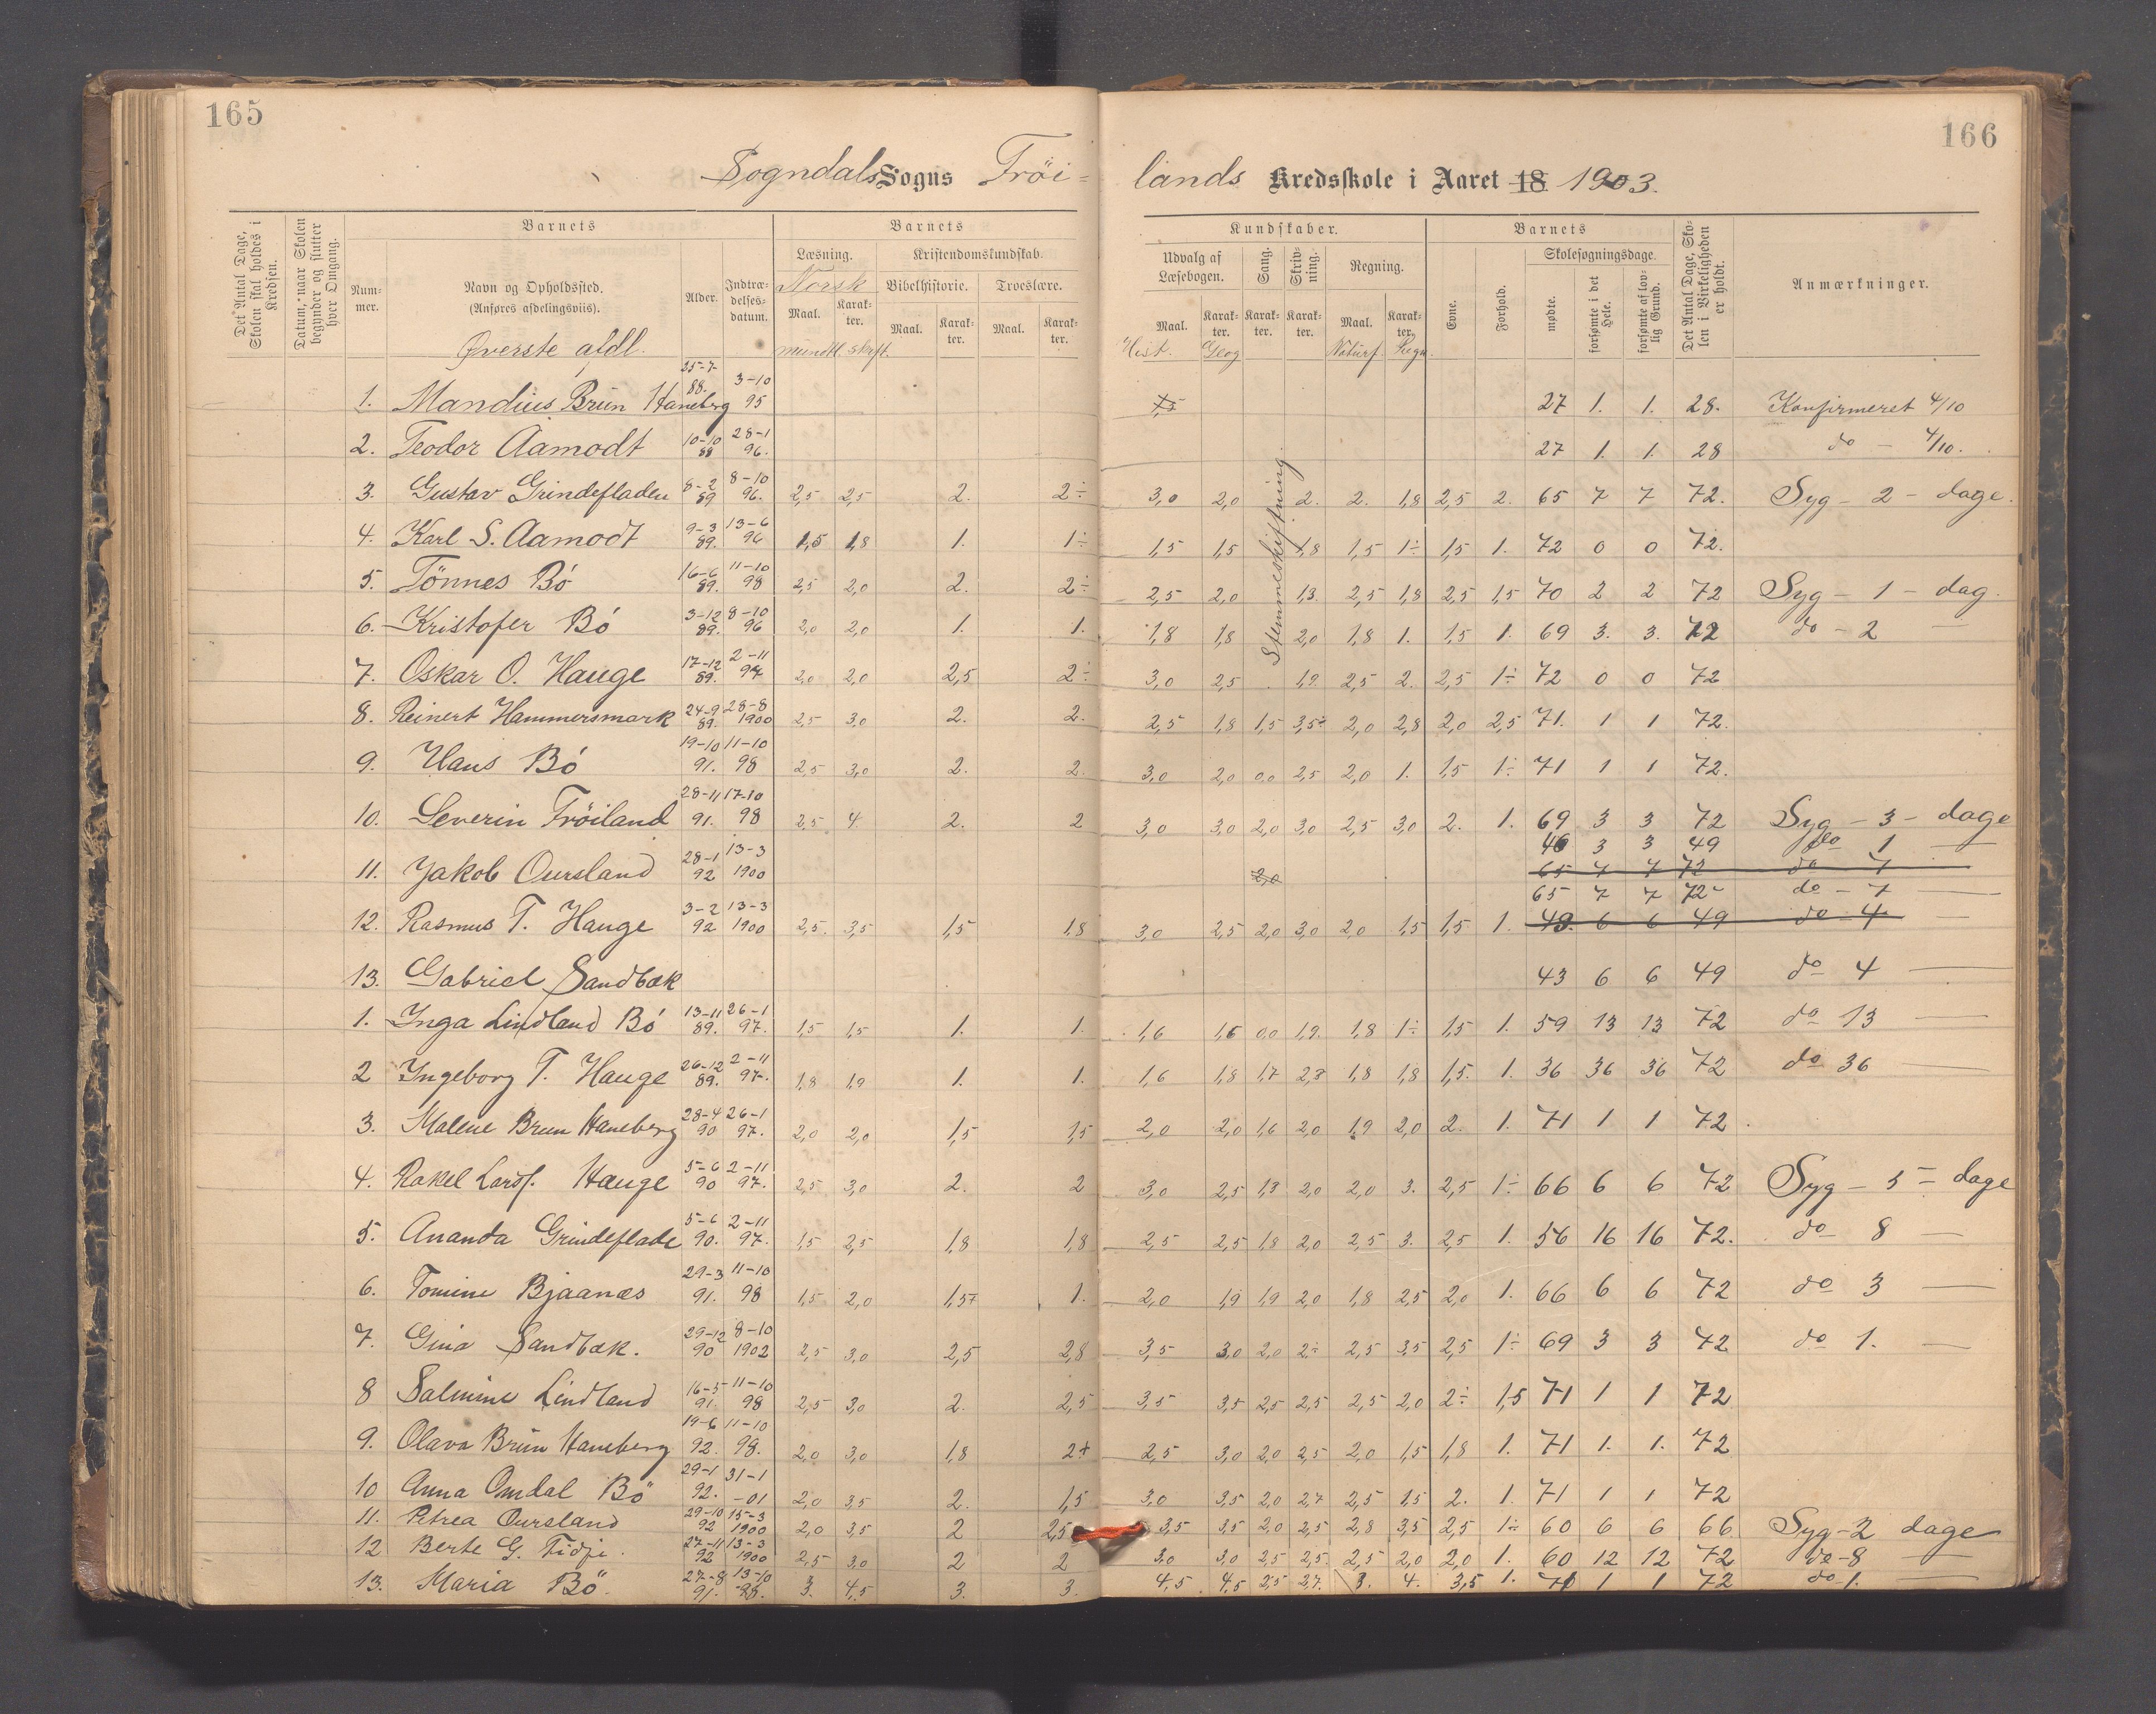 165
166
Sogndals Sogns Tröi-
lands Kredsskole i Aaret 18 1903.
Det Antal Dage, Skolen skal holdes i Kredsen.
Datum, naar Skolen begynder og slutter hver Omgang.
Barnets
Nummer.
Navn og Opholdssted.
(Anføres afdelingsviis).
Øverste afdl.
Alder.
Indtrædelsesdatum.
Barnets
Læsning.
Norsk
Maal.
Karakter.
mundtl. skrft.
Kristendomskundskab.
Bibelhistorie.
Maal.
Karakter.
Troeslære.
Maal.
Karakter.
Kundskaber.
Udvalg af Læsebogen.
Maal.
Karakter.
Hist. Geog
Sang.
Karakter.
Skrivning.
Karakter.
Regning.
Maal.
Karakter.
Naturf. Regn.
Barnets
Evne.
Forhold.
Skolesøgningsdage.
mødte.
forsømte i det Hele.
forsømte af lovlig Grund.
Det Antal Dage, Skolen i Virkeligheden er holdt.
Anmærkninger.
Stemmeskiftning.
1. Mandius Brun Haneberg 25-7 88. 3-10 95 27 1. 1. 28. Konfirmeret 4/10
2. Teodor Aamodt 10-10 88 28-1 96. 27 1. 1. 28 do - 4/10.
3. Gustav Grindefladen 8-2 89 8-10 96. 2,5 2,5 2. 2÷ 3,0 2,0 2. 2. 1,8 2,5 2. 65 7 7 72. Syg - 2 - dage.
4. Karl S. Aamodt 9-3 89. 13-6 96 1,5 1,8 1. 1÷ 1,5 1,5 1,8 1,5 1÷ 1,5 1. 72 0 0 72.
5. Tönnes Bó 16-6 89. 11-10 98 2,5 2,0 2. 2÷ 2,5 2,0 1,3. 2,5 1,8 2,5 1,5 70 2 2 72 Syg - 1 - dag.
6. Kristofer Bó 3-12 89. 8-10 96 2,0 2,0 1. 1. 1,8 1,8 2,0 1,8 1. 1,5 1. 69 3. 3. 72 do - 2 —
7. Oskar O. Hauge 17-12 89. 2-11 97 2,0 2,0 2,5 2÷ 3,0 2,5 1,9. 2,5 2. 2,5 1÷ 72 0 0 72
8. Reinert Hammersmark 24-9 89. 28-8 1900 2,5 3,0 2. 2. 2,5 1,8 1,5 3,5÷ 2,0 2,8 2,0 2,5 71. 1 1 72.
9. Hans Bó 19-10 91. 11-10 98 2,5 3,0 2. 2. 3,0 2,0 0,0 2,5 2,0 1. 1,5 1÷ 71 1 1 72.
10. Severin Tröiland 28-11 91. 17-10 98 2,5 4. 2. 2 3,0 3,0 2,0 3,0 2,5 3,0 2. 1. 69 3 3 72 Syg - 3 - dage
46 3 3 49 do 1 —
11. Jakob Oursland 28-1 92 13-3 1900 2,0 65 7 7 72 do 7
65 7 7 72 do - 7 —
12. Rasmus T. Hauge 3-2 92 13-3 1900 2,5. 3,5 1,5 1,8 3,0 2,5 2,0 3,0 2,0 1,5 1,5 1. 43. 6 6 49 do 4. —
13. Gabriel Sandbæk 43 6 6 49 do 4 —
1. Inga Lindland Bó 13-11 89. 26-1 97. 1,5 1,5 1. 1. 1,6 1,6 0,0 1,9. 1,8 1÷ 1,5 1. 59 13 13 72 do 13 —
2 Ingeborg T. Hauge 26-12 89. 2-11 97. 1,8 1,9 1. 1. 1,6 1,8 1,7 2,3 1,8 1,8 1,5. 1. 36 36 36 72 do 36 —
3. Malene Brun Haneberg 28-4 90 26-1 97. 2,0 2,0 1,5 1,5 2,0 2,0 1,6 2,0 1,9 2,0 2. 1. 71 1 1 72.
4. Rakel Larsf. Hauge 5-6 90 2-11 97. 2,5 3,0 2. 2 3,0 2,5 1,3 2,0 2,0 3. 2,5 1÷ 66 6 6 72 Syg - 5 - dage
5. Ananda Grindeflade 5-6 90. 2-11 97. 1,5 2,5 1,8 1,8 2,5 2,5 1,8 2,0 2,5 3. 2,5 1. 56 16 16 72. do 8 —
6. Tomine Bjaanæs 29-3 91. 11-10 98 1,5 2,0 1,5+ 1. 2,0 1,9 1,9 2,0 1,8 2,5 2,0 1. 66 6 6 72 do 3 —
7. Gina Sandbæk. 29-12 90 8-10 1902 2,5 3,0 2,5 2,8 3,5 3,0 2,0 2÷ 2,5 3,5 2,5 1÷ 69 3 3 72 do 1. —
8 Salmine Lindland 16-5 91. 11-10 98 2,5 3,0 2. 2,5 3,5 3,5 2,5 2,5 2,5 2,0 2÷ 1,5 71 1 1 72
9. Olava Brun Haneberg 19-6 92. 11-10 98. 2,0 3,0 1,8 2+ 2,5 3,0 2,0 2,5 2,0 1,5 1,8 1. 71 1. 1. 72
10 Anna Omdal Bö 29-1 92. 31-1 -01 2,0 3,5 2. 1,5 3,0 3,5 2,0 2,7 2,5 1,5 2. 1. 71 1 1 72
11. Petrea Oursland 29-10 92 15-3 1900 2,0 3,5 2 2,5 3,5 3,5 2,0 2,5 2,8 3,5 2,5 1÷ 60 6 6 66 Syg - 2 dage
12 Berte G. Tidje. 27-11 92 13-3 1900 2,5 3,0 2 2 3,0 3,0 2,5 2,5. 2,5 2,0 2,0 1. 60 12 12 72 do - 8 —
13. Maria Bö. 27-8 91. 13-10 98. 3. 4,5 3. 3. 4,5 4,5 2,5 2,7. 3. 4. 3,5 1. 71 1 1 72 do 1. —